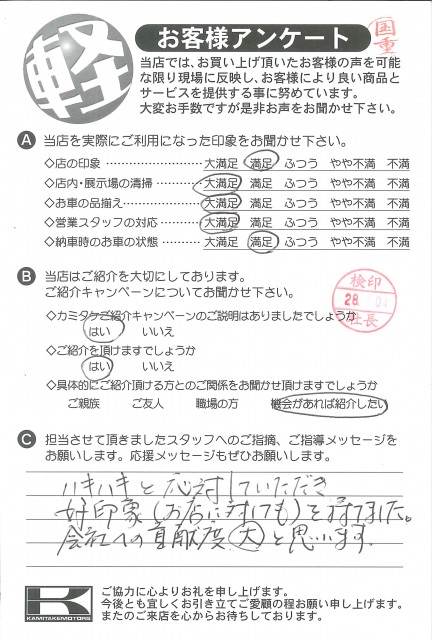 軽
お客様アンケート
国重
当店では、お買い上げ頂いたお客様の声を可能
な限り現場に反映し、お客様により良い商品と
サービスを提供する事に努めています。
大変お手数ですが是非お声をお聞かせ下さい。
A 当店を実際にご利用になった印象をお聞かせ下さい。
◇店の印象 …………………… 大満足 満足 ふつう やや不満 不満
◇店内・展示場の清掃 ………… 大満足 満足 ふつう やや不満 不満
◇お車の品揃え ………………… 大満足 満足 ふつう やや不満 不満
◇営業スタッフの対応 ………… 大満足 満足 ふつう やや不満 不満
◇納車時のお車の状態 ………… 大満足 満足 ふつう やや不満 不満
B 当店はご紹介を大切にしております。
ご紹介キャンペーンについてお聞かせ下さい。
検印
28
社長
◇カミタケご紹介キャンペーンのご説明はありましたでしょうか
はい いいえ
◇ご紹介を頂けますでしょうか
はい いいえ
◇具体的にご紹介頂ける方とのご関係をお聞かせ頂けますでしょうか
ご親族 ご友人 職場の方 機会があれば紹介したい
C 担当させて頂きましたスタッフへのご指摘、ご指導メッセージを
お願いします。応援メッセージもぜひお願いします。
ハキハキと応対していただき
好印象(お店に対しても)を得てました。
会社への貢献度大と思います。
K
KAMITAKEMOTORS
ご協力に心よりお礼を申し上げます。
今後とも宜しくお引き立てご愛顧の程お願い申し上げます。
またのご来店を心からお待ちしております。